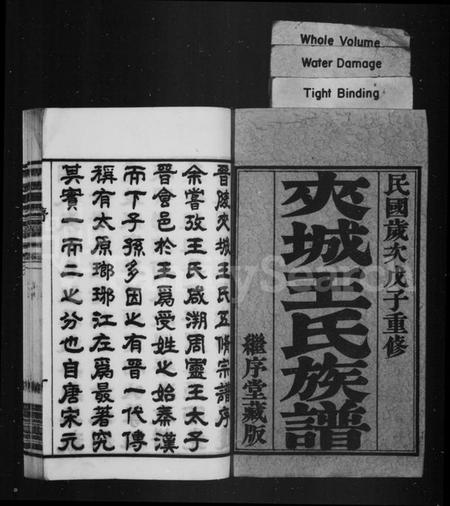 Whole Volume
Water Damage
Tight Binding
民國歲次戊子重修
夾城王氏族譜
繼序堂藏版
晉陵夾城王氏五修宗譜序
余嘗攷王氏咸溯周靈王太子
晉食邑於王爲受姓之始秦漢
而下子孫多因之有晉一代傳
稱有太原瑯琊江左爲最著究
其實一而二之分也自唐宋元